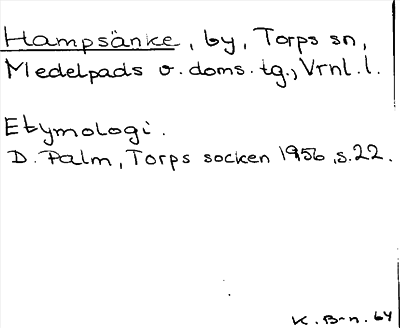 Hampsänke, by, Torps sn,
Medelpads v. doms. tg., Vrnl. l.
Etymologi.
D. Palm, Torps socken 1956, s. 22.
K. B-n. 64